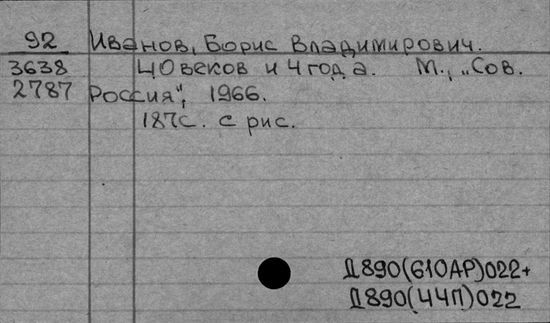 92 Иванов, Борис Владимирович.
3638 40 веков и 4 года. М., „Сов.
2787 Россия", 1966.
187с. с рис.
Д890(610АР)022+
Д890(44П)022